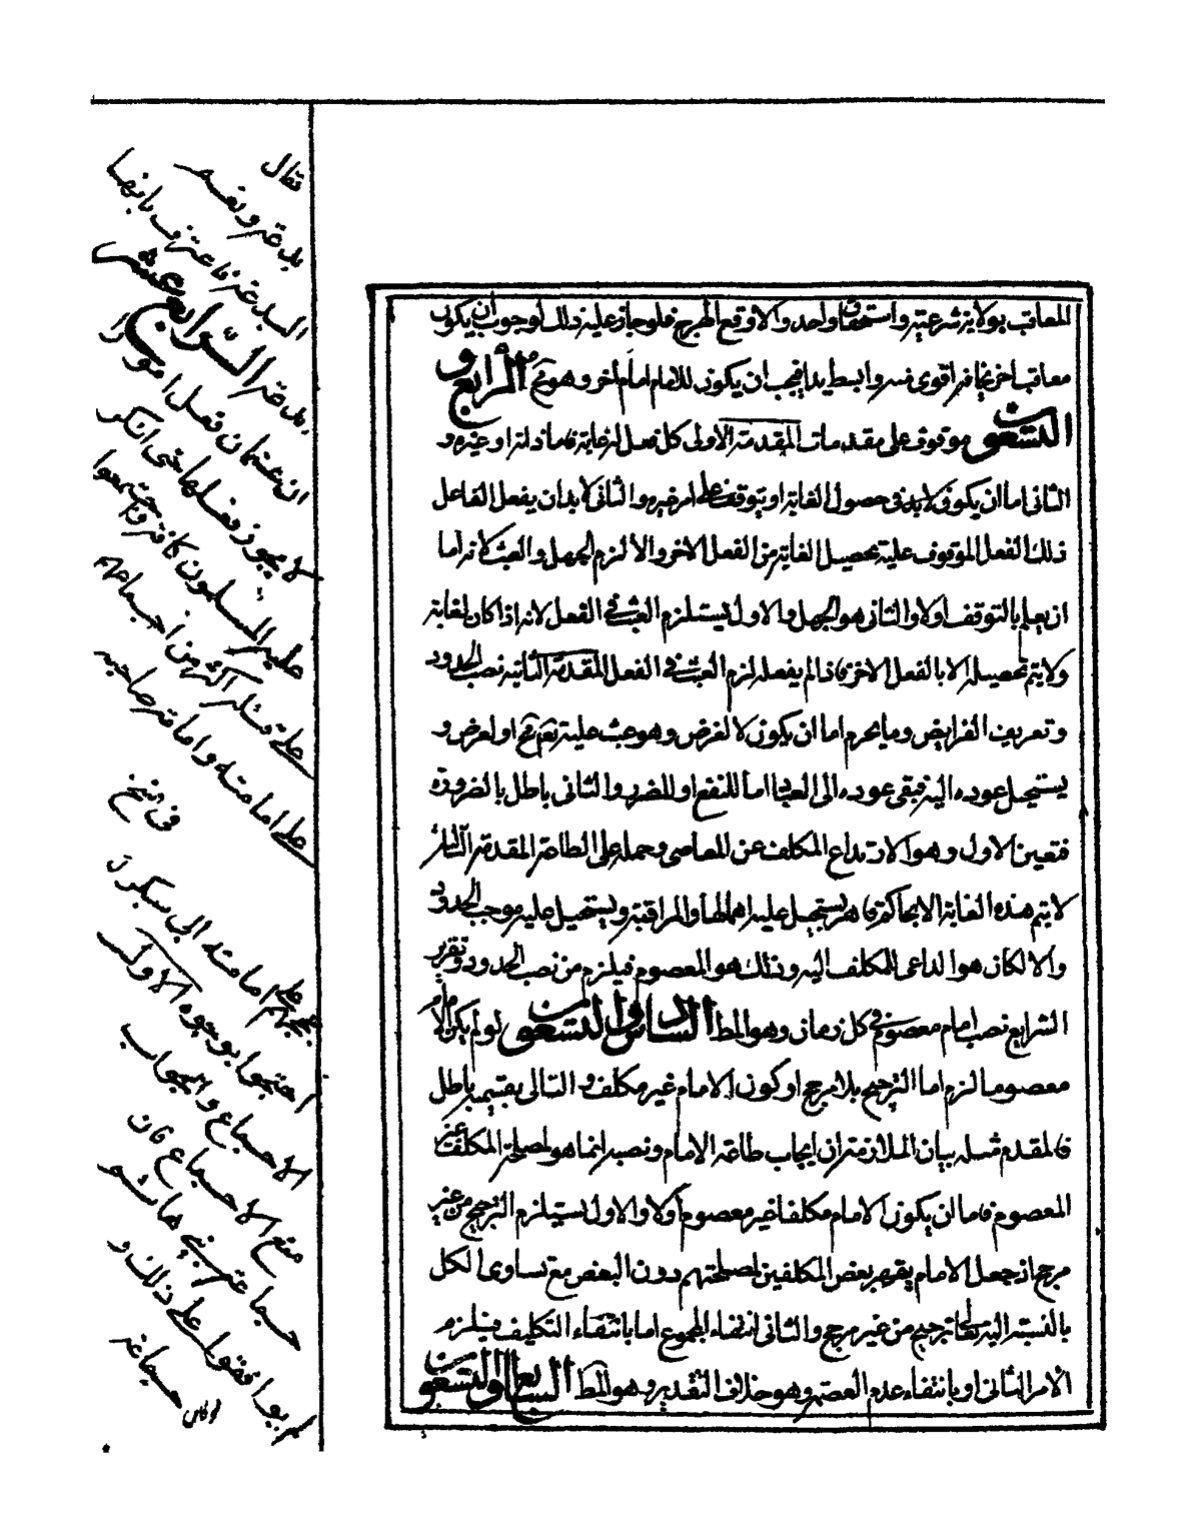 المعاقب بولاية شرعية واستحقاق واحد والا وقع الهرج فلو جاز عليه ذلك لوجوب ان يكون
معاقب اخر نجا فيه اقوى منه وابسط يدا فيجب ان يكون للامام امام اخر وهو مح الرابع و
التسعون موقوف على مقدمات المقدمة الاولى كل فعل لغاية فاما ذلته او غيره و
الثانى اما ان يكون لابد فى حصول الغاية او يتوقف على امر غيره والثانى لابد ان يفعل الفاعل
ذلك الفعل الموقوف عليه تحصيل الغاية من الفعل الاخر والا لزم الجهل والعبث لانه اما
ان يعلم بالتوقف اولا والثانى هو الجهل والاول يستلزم العبث فى الفعل لانه اذا كان لغاية
ولا يتم تحصيله الا بالفعل الاخر فاذا لم يفعله لزم العبث فى الفعل المقدمة الثانية نصب الحدود
وتعريف الفرايض وما يحرم اما ان يكون لا لغرض وهو عبث عليه تع مح او لغرض و
يستحيل عوده اليه فبقى عوده الى العبد اما للنفع او للضرر والثانى باطل بالضرورة
فتعين الاول وهو الارتداع المكلف عن المعاصى وحمله على الطاعة المقدمة الثالثة
لا يتم هذه الغاية الا بحاكم قاهر يستحيل عليه اهمالها والمراقبة ويستحيل عليه موجب الحدود
والا لكان هو الداعى للمكلف اليه وذلك هو المعصوم فيلزم من نصب الحدود وتقرير
الشرايع نصب امام معصوم فى كل زمان وهو المط السادس والتسعون لو لم يكن الامام
معصوما لزم اما الترجيح بلا مرجح او كون الامام غير مكلف و التالى بقسيميه باطل
فالمقدم مثله بيان الملازمة ان ايجاب طاعة الامام ونصبه انما هو لمصلحة المكلف غير
المعصوم فاما ان يكون الامام مكلفا غير معصوم اولا والاول يستلزم الترجيح من غير
مرجح اذ جعل الامام يقهر بعض المكلفين لمصلحتهم دون البعض مع تساوى الكل
بالنسبة اليه تعالى ترجيح من غير مرجح والثانى انتفاء المجموع اما بانتفاء التكليف فيلزم
الامر الثانى او بانتفاء عدم العصمة وهو خلاف التقدير وهو المط السابع والتسعون
فقال
بدعة ونعمت
البدعة فاعترف بانها
بدعة الرابع عشر
ان عثمان فعل امورا
لا يجوز فعلها حتى انكر
عليه المسلمون كافة واجتمعوا
على قتله اكثر من اجماعهم
على امامته وامامة صاحبيه
فى نسخ
على امامته ابى بكر
احتجوا بوجوه الاول
الاجماع والجواب
منع الاجماع فان
جماعة بنى هاشم
لم يوافقوا على ذلك و
جماعة